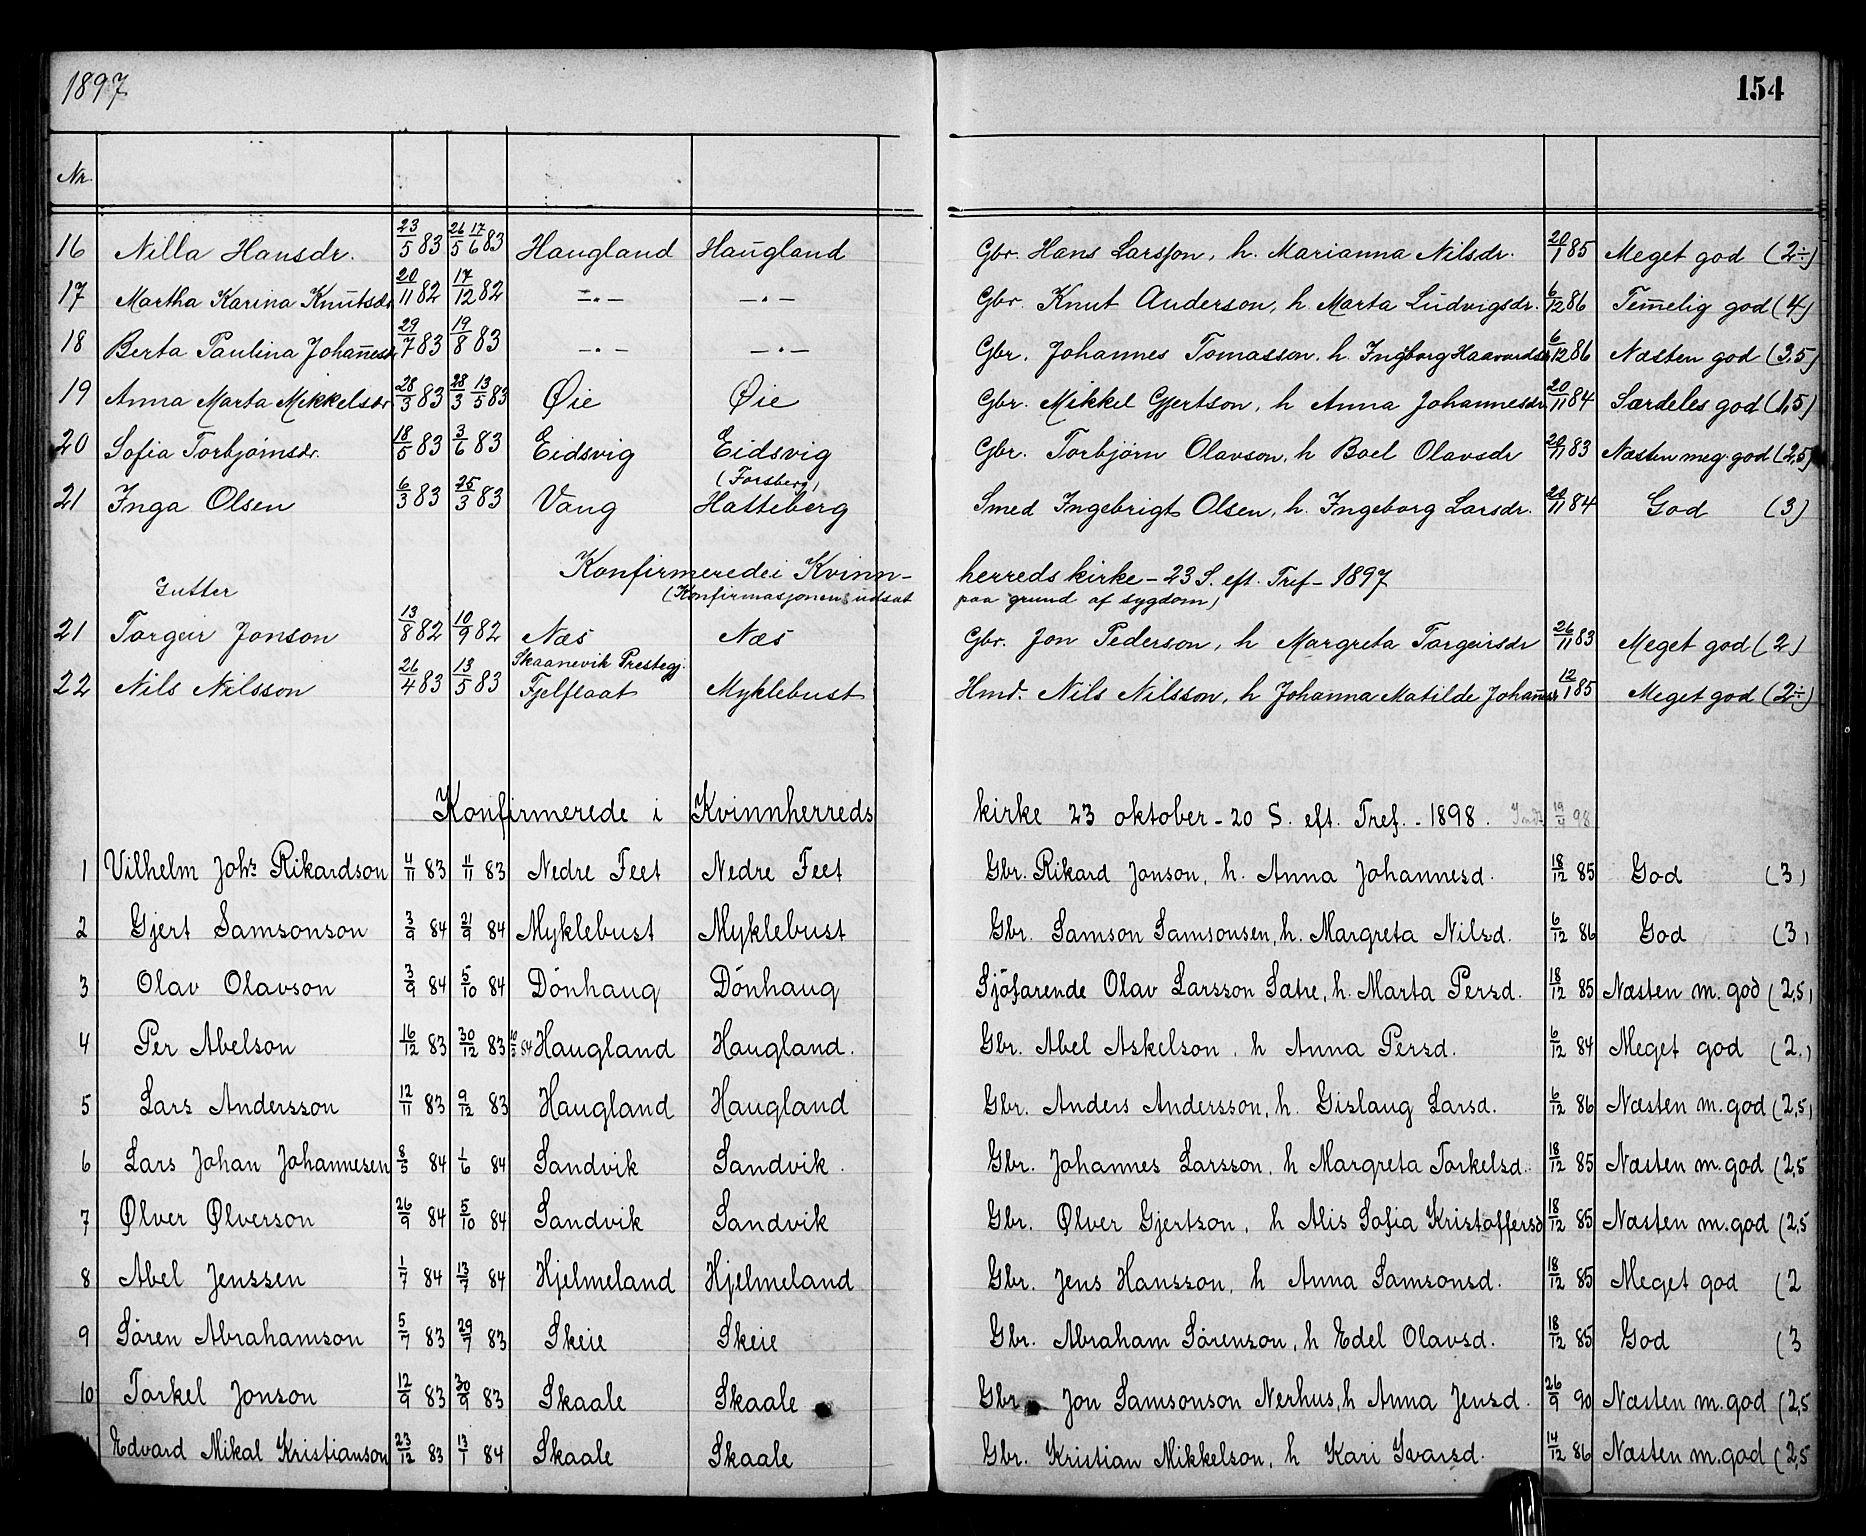 1897 154
Nr.
16 Nilla Hansdr. 23/5 83 26/5 17/6 83 Haugland Haugland Gbr. Hans Larsson, h. Marianna Nilsdr. 20/1 85 Meget god (2÷)
17 Martha Karina Knutsdr 20/11 82 17/12 82 —"— —"— Gbr. Knut Anderson, h. Marta Ludvigsdr. 6/12 86 Temelig god (4)
18 Berta Paulina Johanesdr 29/7 83 19/8 83 —"— —"— Gbr. Johannes Tomasson, h. Ingborg Haavardsdr 6/12 86 Næsten god (3,5)
19 Anna Marta Mikkelsdr 28/3 83 28/3 13/5 83 Øie Øie Gbr. Mikkel Gjertson, h Anna Johannesdr 20/11 84 Særdeles god (1,5)
20 Sofia Torbjørnsdr. 18/5 83 3/6 83 Eidsvig Eidsvig Gbr. Torbjørn Olavson, h Boel Olavsdr 20/11 83 Næsten meg. god (2,5)
(Forsberg)
21 Inga Olsen 6/3 83 25/3 83 Vang Hatteberg Smed Ingebrigt Olsen, h. Ingeborg Larsdr. 20/11 84 God (3)
Konfirmerede i Kvinn- herreds kirke – 23 S. eft. Tref – 1897
Gutter (Konfirmasjonen udsat paa grund af sygdom)
21 Torgeir Jonson 13/8 82 10/9 82 Næs Næs Gbr. Jon Pederson, h Margreta Torgeirsdr 26/11 83 Meget god (2)
Skaanevik Prestegj.
22 Nils Nilsson 26/4 83 13/5 83 Fjelflaat Myklebust Hmd. Nils Nilsson, h Johanna Matilde Johanesdr 12/1 85 Meget god (2÷)
Konfirmerede i Kvinnherreds kirke 23 oktober – 20 S. eft. Tref. – 1898. Indt 98
1 Vilhelm Johs Rikardson 4/11 83 11/11 83 Nedre Feet Nedre Feet Gbr. Rikard Jonson, h. Anna Johannesd. 18/12 85 God (3)
2 Gjert Samsonson 3/9 84 21/9 84 Myklebust Myklebust Gbr. Samson Samsonsen, h. Margreta Nilsd. 6/12 86 God (3)
3 Olav Olavson 3/9 84 5/10 84 Dönhaug Dönhaug Sjöfarende Olav Larsson Sætre, h. Marta Persd. 18/12 85 Næsten m. god (2,5)
4 Per Abelson 16/12 83 30/12 83 84 Haugland Haugland. Gbr. Abel Askelson, h Anna Persd. 6/12 84 Meget god (2.)
5 Lars Andersson 12/11 83 9/12 83 Haugland Haugland Gbr. Anders Andersson, h. Gislaug Larsd. 6/12 86 Næsten m. god (2,5)
6 Lars Johan Johannesen 8/5 84 1/6 84 Sandvik Sandvik. Gbr. Johannes Larsson, h Margreta Torkelsd. 18/12 85 Næsten m. god (2,5
7 Ølver Ølverson 26/9 84 5/10 84 Sandvik Sandvik Gbr. Ølver Gjertson, h Alis Sofia Kristoffersd 18/12 85 Næsten m. god (2,5
8 Abel Jenssen 1/7 84 13/7 84 Hjelmeland Hjelmeland Gbr. Jens Hansson, h Anna Samsonsd. 18/12 85 Meget god (2
9 Sören Abrahamson 5/7 83 29/7 83 Skeie Skeie Gbr. Abraham Sörenson, h Edel Olavsd. 18/12 85 God (3
10 Torkel Jonson 12/9 83 30/9 83 Skaale Skaale Gbr. Jon Samsonson Nerhus, h Anna Jensd. 26/9 90 Næsten m. god (2,5
Edvard Mikal Kristianson 23/12 83 13/1 84 Skaale Skaale Gbr. Kristian Mikkelson, h Kari Ivarsd. 14/12 86 Næsten m. god (2,5